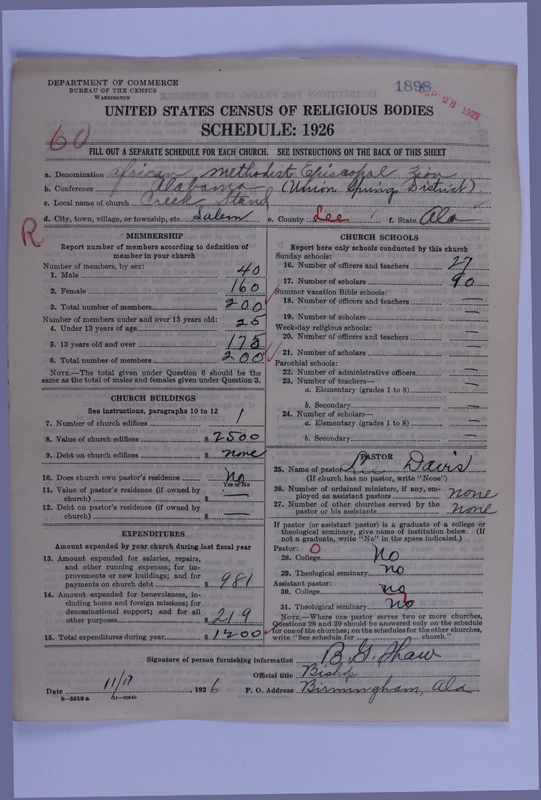 DEPARTMENT OF COMMERCE
BUREAU OF THE CENSUS
WASHINGTON
1898
SEP 28 1927
UNITED STATES CENSUS OF RELIGIOUS BODIES
SCHEDULE: 1926
60
FILL OUT A SEPARATE SCHEDULE FOR EACH CHURCH. SEE INSTRUCTIONS ON THE BACK OF THIS SHEET
a. Denomination African Methodist Episcopal Zion
b. Conference Alabama (Union Springs District)
c. Local name of church Creek Stand
d. City, town, village, or township, etc. Salem e. County Lee f. State Ala
R
MEMBERSHIP
Report number of members according to definition of member in your church
Number of members, by sex:
1. Male 40
2. Female 160
3. Total number of members 200
Number of members under and over 13 years old:
4. Under 13 years of age 25
5. 13 years old and over 175
6. Total number of members 200
NOTE.—The total given under Question 6 should be the same as the total of males and females given under Question 3.
CHURCH BUILDINGS
See instructions, paragraphs 10 to 12
7. Number of church edifices 1
8. Value of church edifices $ 2500
9. Debt on church edifices $ none
10. Does church own pastor's residence No
Yes or No
11. Value of pastor's residence (if owned by church) $ —
12. Debt on pastor's residence (if owned by church) $ —
EXPENDITURES
Amount expended by your church during last fiscal year
13. Amount expended for salaries, repairs, and other running expenses; for improvements or new buildings; and for payments on church debt $ 981
14. Amount expended for benevolences, including home and foreign missions; for denominational support; and for all other purposes $ 219
15. Total expenditures during year $ 1200
CHURCH SCHOOLS
Report here only schools conducted by this church
Sunday schools:
16. Number of officers and teachers 27
17. Number of scholars 90
Summer vacation Bible schools:
18. Number of officers and teachers —
19. Number of scholars —
Week-day religious schools:
20. Number of officers and teachers —
21. Number of scholars —
Parochial schools:
22. Number of administrative officers —
23. Number of teachers—
a. Elementary (grades 1 to 8) —
b. Secondary —
24. Number of scholars—
a. Elementary (grades 1 to 8) —
b. Secondary —
PASTOR
25. Name of pastor Davis
(If church has no pastor, write "None")
26. Number of ordained ministers, if any, employed as assistant pastors none
27. Number of other churches served by the pastor or his assistants none
If pastor (or assistant pastor) is a graduate of a college or theological seminary, give name of institution below. (If not a graduate, write "No" in the space indicated.)
Pastor: O
28. College No
29. Theological seminary no
Assistant pastor:
30. College no
31. Theological seminary no
NOTE.—Where one pastor serves two or more churches, Questions 28 and 29 should be answered only on the schedule for one of the churches; on the schedules for the other churches, write "See schedule for church."
Signature of person furnishing information B. G. Shaw
Official title Bishop
Date 11/17, 1926 P. O. Address Birmingham, Ala.
8—5518a